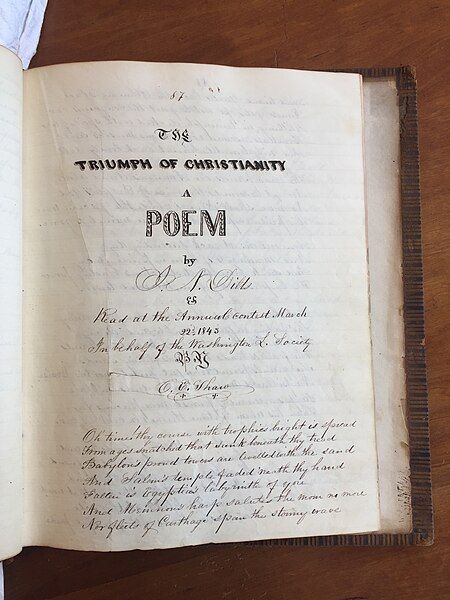 87
THE
TRIUMPH OF CHRISTIANITY
A
POEM
by
J. N. Dills
&
Read at the Annual contest March
22d 1843
In behalf of the Washington L. Society
BY
C. E. Shaw
Oh time! thy course with trophies bright is spread
From ages snatched that sunk beneath thy tread
Babylons proud towers are levelled with the sand
And Salem's temple faded neath thy hand
Fallen is Egyptias labyrinth of yore
And Memnons harp salutes the morn no more
Nor fleets of Carthage span the stormy wave